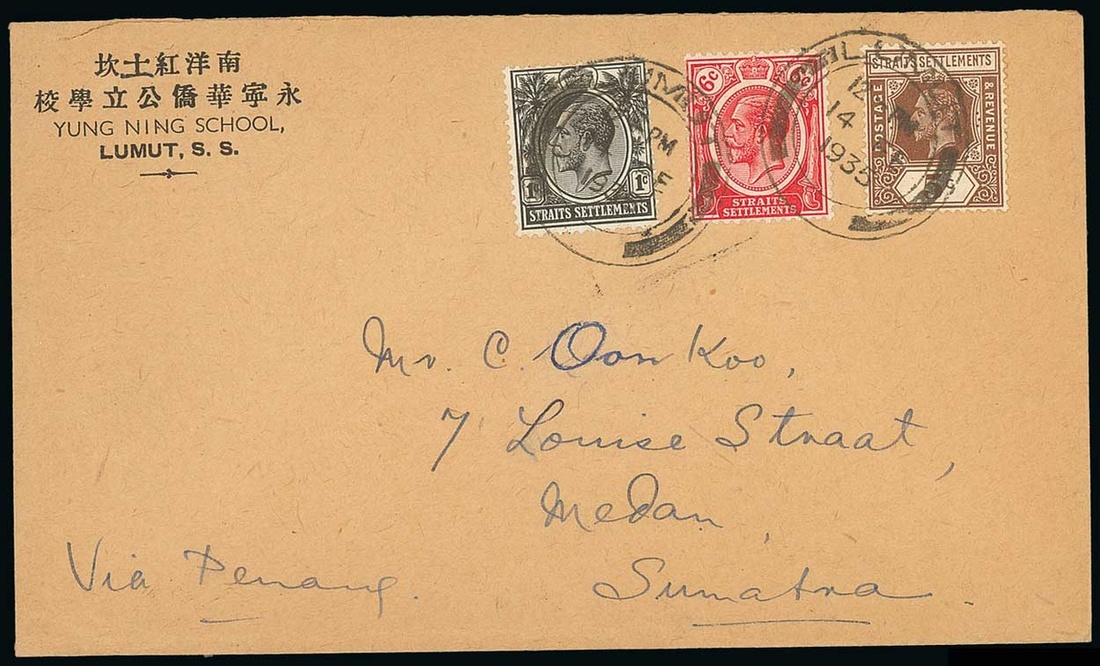 南洋紅土坎
永寧華僑公立學校
YUNG NING SCHOOL,
LUMUT, S. S.
1c 1c
STRAITS SETTLEMENTS
PM
6c 6c
STRAITS
SETTLEMENTS
STRAITS SETTLEMENTS
POSTAGE & REVENUE
12
14
1935
Mr. C. Oon Koo,
7 Louise Straat,
Medan,
Sumatra.
Via Penang.